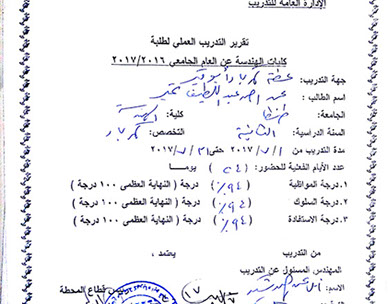 الإدارة العامة للتدريب
تقرير التدريب العملي لطلبة
كليات الهندسة عن العام الجامعي ٢٠١٧/٢٠١٦
جهة التدريب: محطة كهرباء أبو قير
اسم الطالب : عبد اللطيف
الجامعة: طنطا كلية: الهندسة
السنة الدراسية: الثانية التخصص: كهرباء
مدة التدريب من ٢٠١٧/٧/١ حتى ٢٠١٧/٧/٣١
عدد الأيام الفعلية للحضور: ( ٢٤ ) يوما
١. درجة المواظبة (٩٤٪) درجة ( النهاية العظمى ١٠٠ درجة )
٢. درجة السلوك (٩٤٪) درجة ( النهاية العظمى ١٠٠ درجة )
٣. درجة الاستفادة (٩٤٪) درجة ( النهاية العظمى ١٠٠ درجة )
من التدريب يعتمد ،
المهندس المسئول عن التدريب
الاسم: رئيس قطاع المحطة